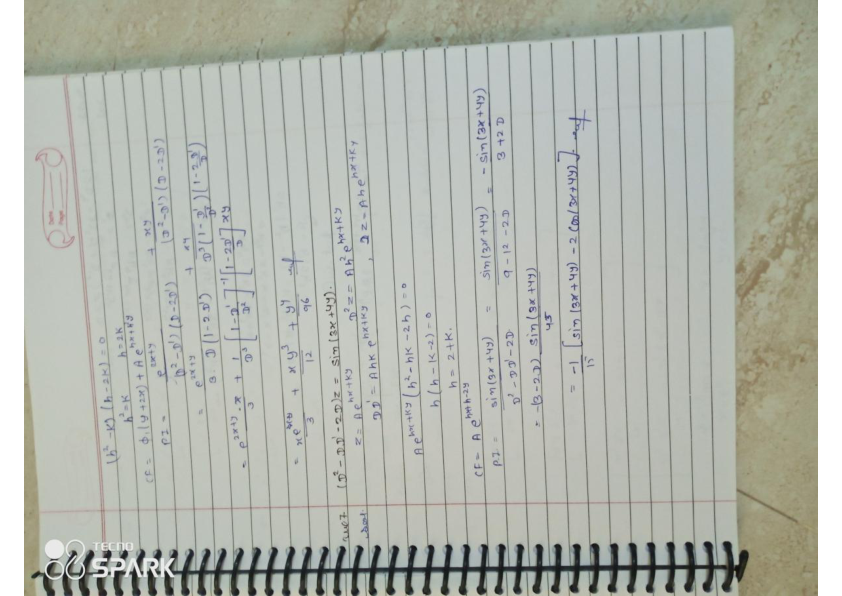 (h² - K) (h - 2K) = 0
h² = K    h = 2K
CF = φ₁(y + 2x) + A e^{hx + h²y}
PI = e^{2x+y} / (D² - D') (D - 2D') + xy / (D² - D') (D - 2D')
= e^{2x+y} / 3 · D (1 - 2D') + xy / D³ (1 - D'/D²) (1 - 2D'/D)
= e^{2x+y} · x / 3 + 1/D³ [1 - D'/D²]^{-1} [1 - 2D'/D] xy
= + xy³/12 + y⁴/96
(D² - DD' - 2D) z = sin (3x + 4y).
z = A e^{hx + Ky}    D² z = A h² e^{hx + Ky}
DD' = A h K e^{hx + Ky} , D z = A h e^{hx + Ky}
A e^{hx + Ky} (h² - hK - 2h) = 0
h (h - K - 2) = 0
h = 2 + K.
CF = A
PI = sin (3x + 4y) / D² - DD' - 2D = sin (3x + 4y) / 9 - 12 - 2D = - sin (3x + 4y) / 3 + 2D
= -(3 - 2D) sin (3x + 4y) / 45
= -1/15 [sin (3x + 4y) - 2 cos (3x + 4y)]
TECNO
SPARK